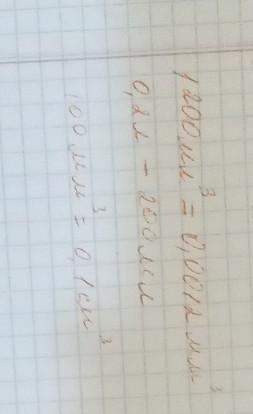 1200мл³ = 0,0012мм³
0,2л - 200мл
100мм³ = 0,1см³